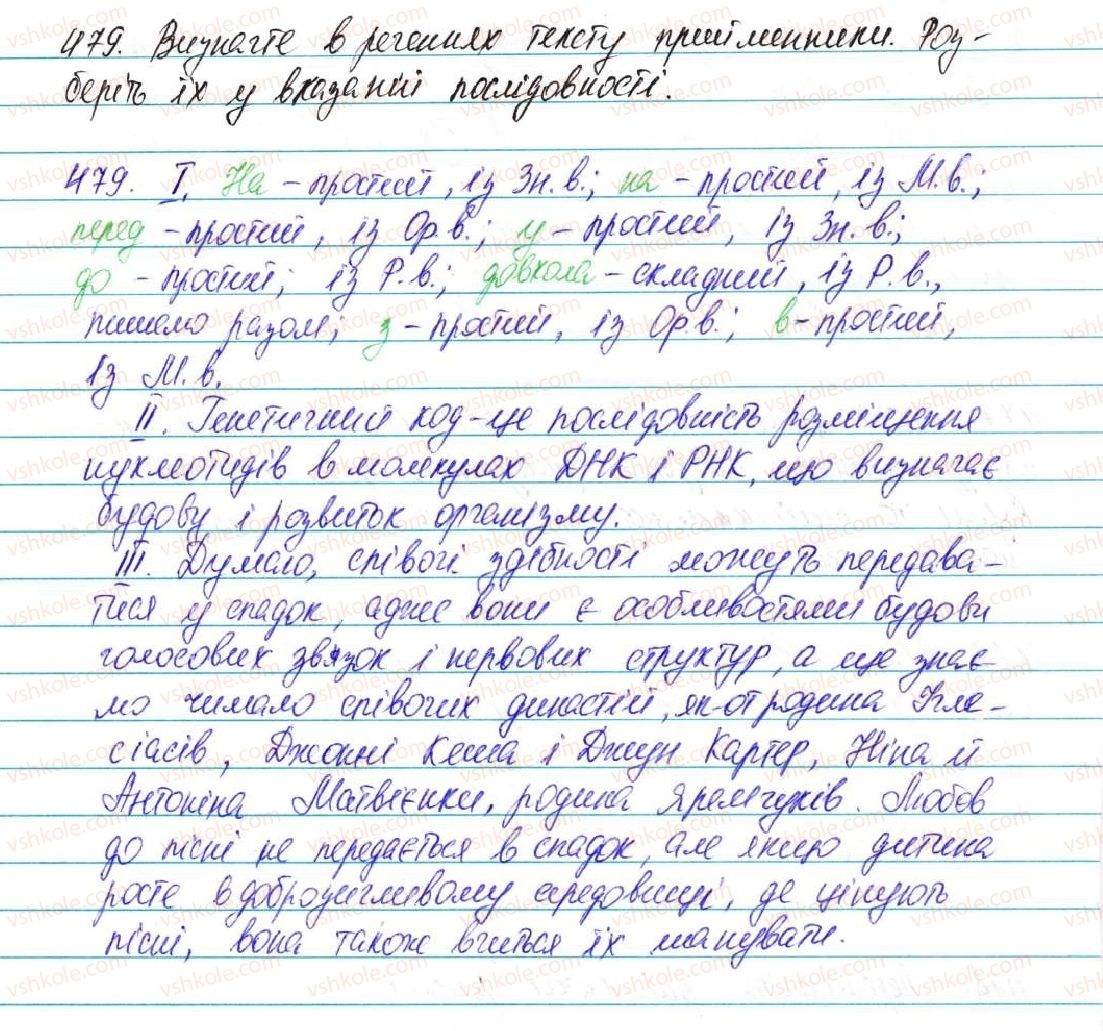 479. Визначте в реченнях тексту прийменники. Роз-
беріть їх у вказаній послідовності.
479. І. На – простий, із Зн. в.; на – простий, із М. в.;
перед – простий, із Ор. в.; у – простий, із Зн. в.;
до – простий; із Р. в.; довкола – складний, із Р. в.,
пишемо разом; з – простий, із Ор. в.; в – простий,
із М. в.
ІІ. Генетичний код – це послідовність розміщення
нуклеотидів в молекулах ДНК і РНК, що визначає
будову і розвиток організму.
ІІІ. Думаю, співочі здібності можуть передава-
тися у спадок, адже вони є особливостями будови
голосових звязок і нервових структур, а ще знає-
мо чимало співочих династій, як-от родина Ігле-
сіасів, Джонні Кеша і Джун Картер, Ніна й
Антоніна Матвієнки, родина Яремчуків. Любов
до пісні не передається в спадок, але якщо дитина
росте в доброзичливому середовищі, де цінують
пісні, вона також вчиться їх шанувати.